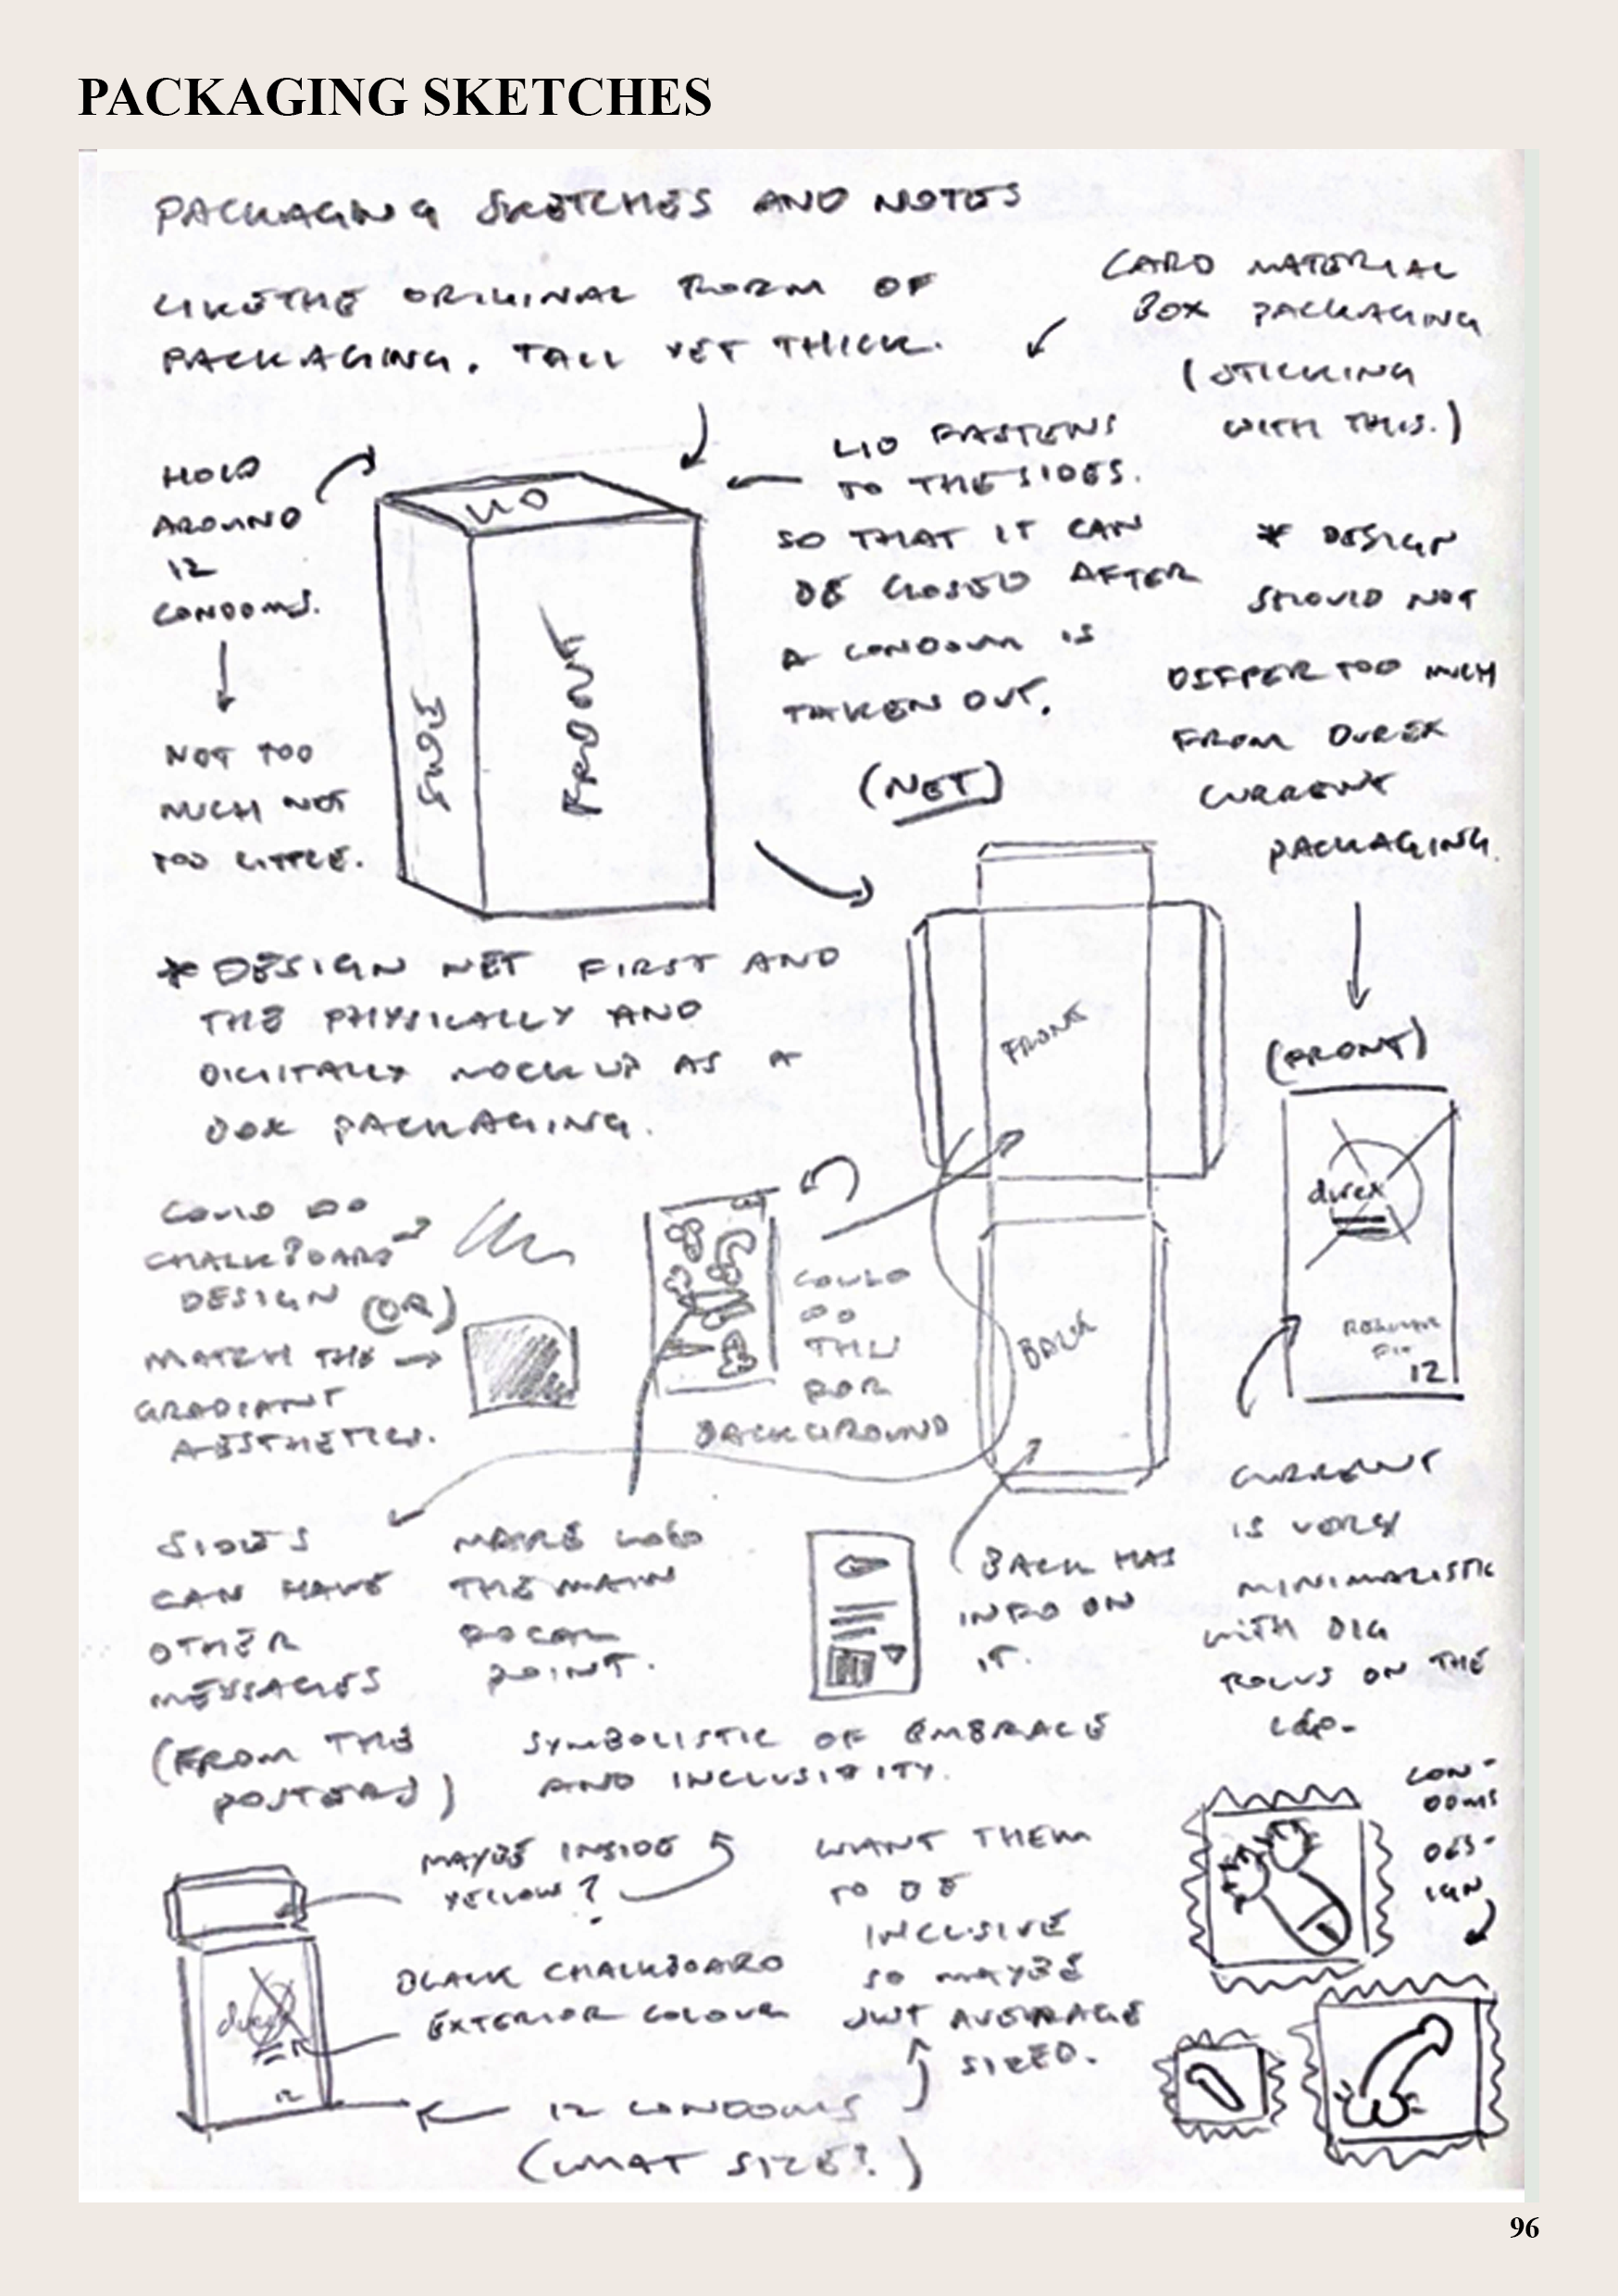 PACKAGING SKETCHES
PACKAGING SKETCHES AND NOTES
LIKE THE ORIGINAL FORM OF
PACKAGING. TALL YET THICK.
CARD MATERIAL
BOX PACKAGING
(STICKING
WITH THIS.)
HOLD
AROUND
12
CONDOMS.
NOT TOO
MUCH NOT
TOO LITTLE.
LID
SIDE
FRONT
LID FASTENS
TO THE SIDES.
SO THAT IT CAN
BE CLOSED AFTER
A CONDOM IS
TAKEN OUT.
(NET)
* DESIGN
SHOULD NOT
DIFFER TOO MUCH
FROM DUREX
CURRENT
PACKAGING.
* DESIGN NET FIRST AND
THE PHYSICALLY AND
DIGITALLY MOCKUP AS A
BOX PACKAGING.
FRONT
BACK
(FRONT)
durex
REGULAR
FIT
12
COULD DO
CHALKBOARD
DESIGN (OR)
MATCH THE
GRADIANT
AESTHETICS.
COULD
DO
THIS
FOR
BACKGROUND
CURRENT
IS VERY
MINIMALISTIC
WITH BIG
FOCUS ON THE
SIDES
CAN HAVE
OTHER
MESSAGES
(FROM THE
POSTERS)
MAKE LOGO
THE MAIN
FOCAL
POINT.
BACK HAS
INFO ON
IT.
SYMBOLISTIC OF EMBRACE
AND INCLUSIVITY.
MAYBE INSIDE
YELLOW?
BLACK CHALKBOARD
EXTERIOR COLOUR
durex
12
WANT THEM
TO BE
INCLUSIVE
SO MAYBE
JUST AVERAGE
SIZED.
12 CONDOMS
(WHAT SIZE?)
CON-
DOMS
DES-
IGN
96